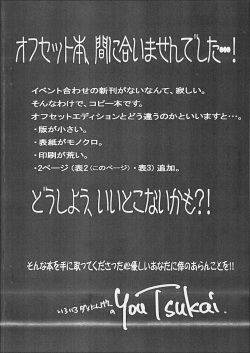 オフセット本、間に合いませんでした…!
イベント合わせの新刊がないなんて、寂しい。
そんなわけで、コピー本です。
オフセットエディションとどう違うのかといいますと…。
・版が小さい。
・表紙がモノクロ。
・印刷が荒い。
・2ページ(表2(このページ)・表3)追加。
どうしよう、いいとこないかも?!
そんな本を手に取ってくださった@優しいあなたに倖のあらんことを!!
の You Tsukai.